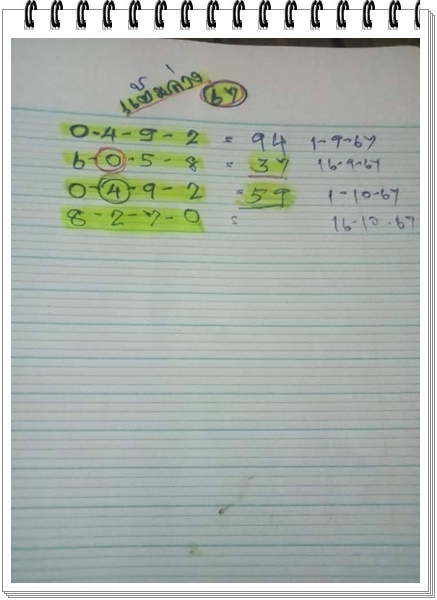 แต้มล่าง 67
0-4-9-2 = 94 1-9-67
6-0-5-8 = 37 16-9-67
0-4-9-2 = 59 1-10-67
8-2-7-0 = 16-10-67